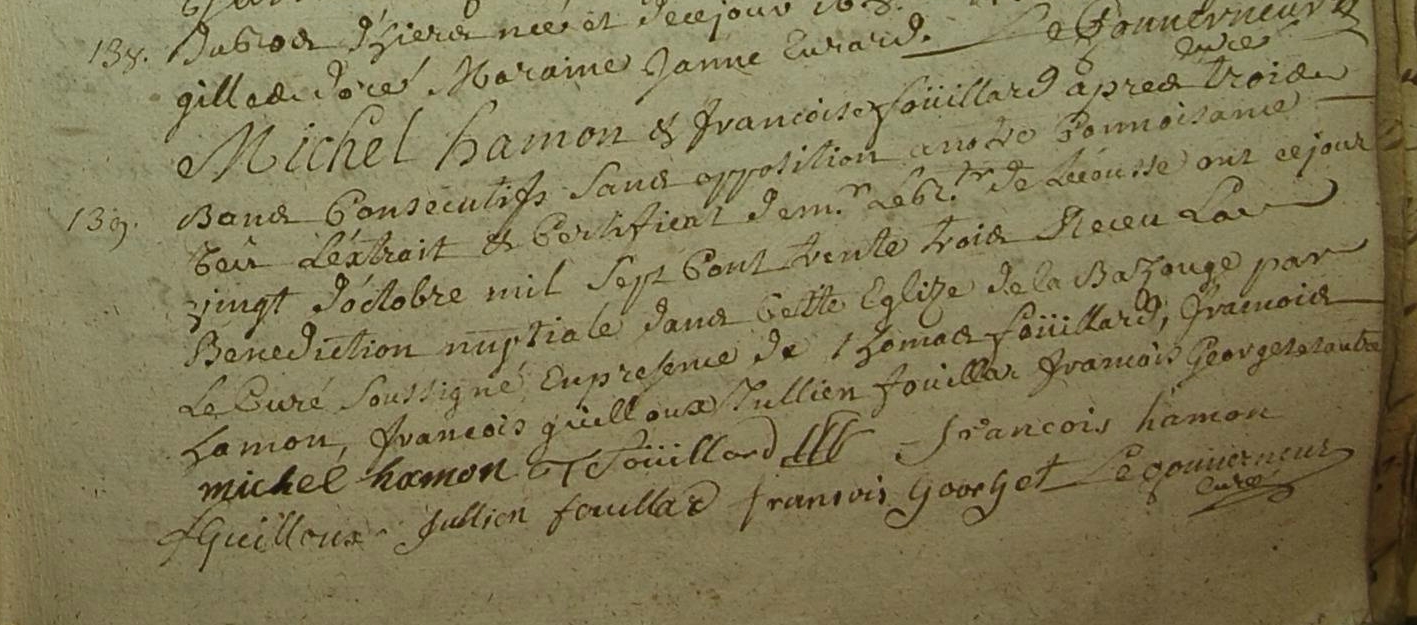 138. d'hier né et de ce jour
gilles doré Maraine Janne Eurard. Le Gouverneur
curé
Michel hamon & francoise foüillard apres trois
139. Bans Consecutifs Sans opposition a notre Connoisance
Veu L'extrait & Certificat de m.r Le de Lécousse ont ce jour
vingt d'octobre mil Sept Cent trente trois Receu La
Benediction nuptiale dans Cette Eglize de la Bazouge par
Le Curé Soussigné En presence de Thomas foüillard, francois
hamon, francois guilloux Jullien fouillar francois Georget & autre
michel hamon T foüillard francois hamon
f Guilloux Jullien fouillard fransois Georget Le gouverneur
curé